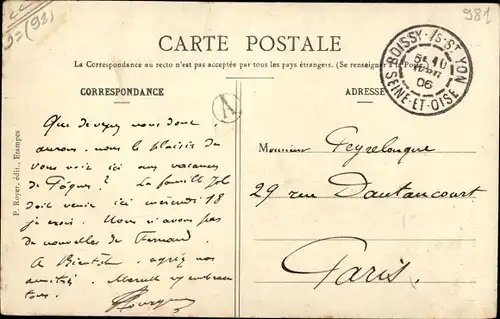 981
(91)
CARTE POSTALE
La Correspondance au recto n'est pas acceptée par tous les pays étrangers. (Se renseigner à la Poste)
CORRESPONDANCE
ADRESSE
BOISSY-S-ST YON
06
SEINE-ET-OISE
A
P. Royer, édit., Etampes
Que devenez vous donc
aurons-nous le plaisir de
vous voir ici aux vacances
de Pâques ? La famille
doit venir ici mercredi 18
je crois. Nous n'avons pas
de nouvelles de Fernand.
A Bientôt, agréez nos
amitiés. Marcelle
tous.
Monsieur Peyrelongue
29 rue Dautancourt
Paris.